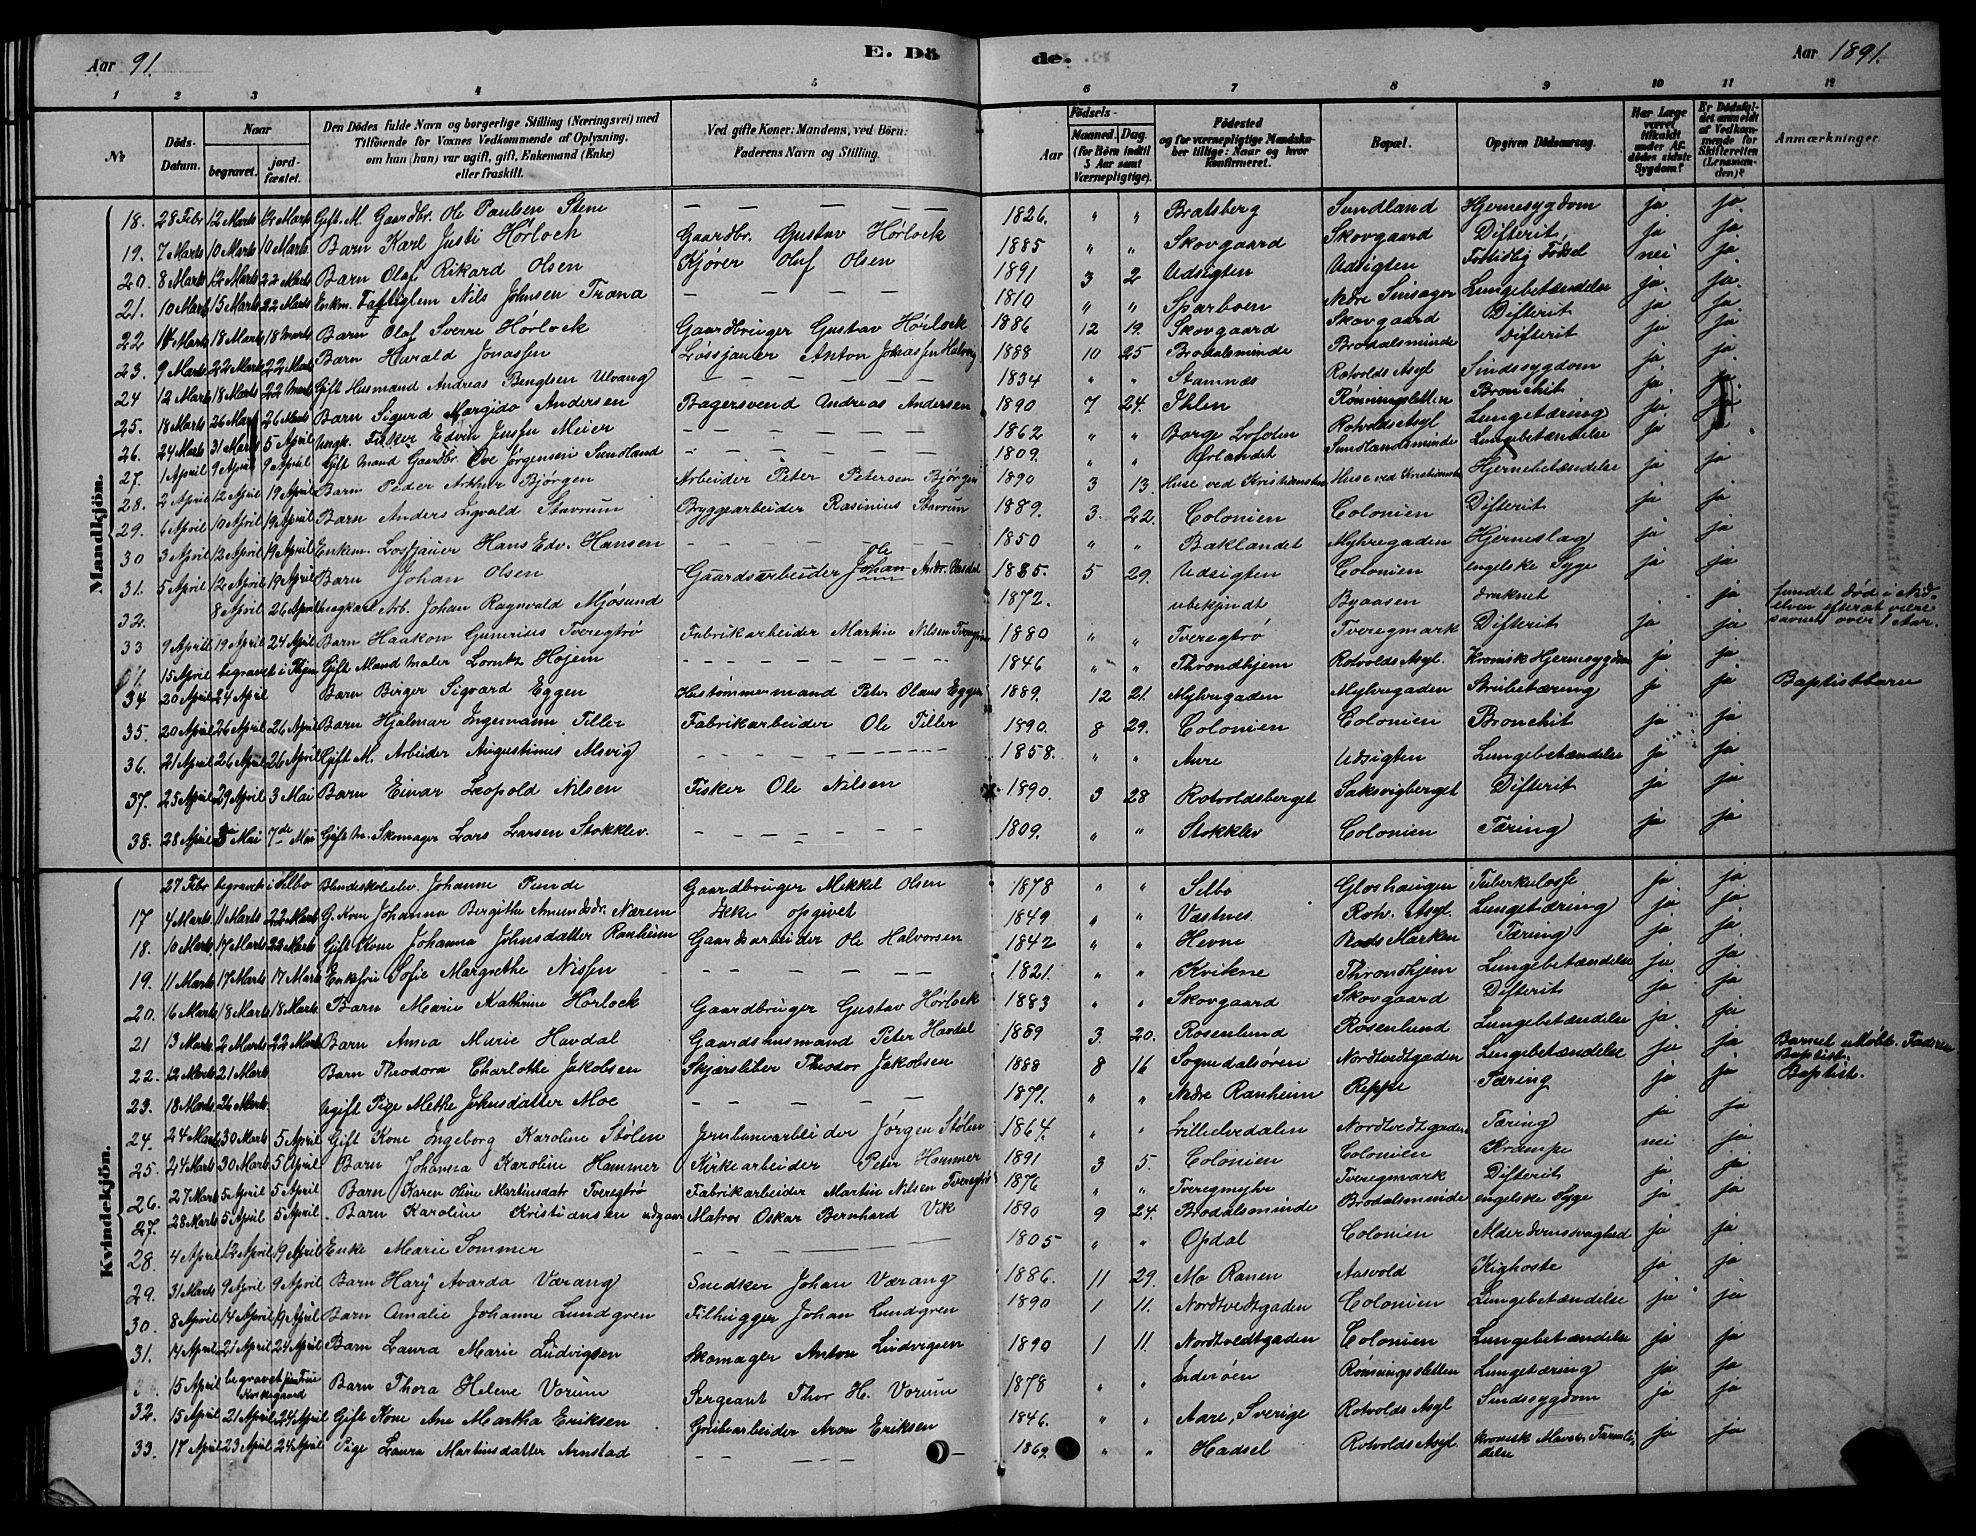 Aar 91. E. Dö de. Aar 1891.
1 2 3 4 5 6 7 8 9 10 11 12
No Döds-Datum. Naar begravet. jordfæstet. Den Dödes fulde Navn og borgerlige Stilling (Næringsvei) med Tilföiende for Voxnes Vedkommende af Oplysning, om han (hun) var ugift, gift, Enkemand (Enke) eller fraskilt. Ved gifte Koner: Mandens, ved Börn: Faderens Navn og Stilling. Födsels- Aar Maaned. Dag. (for Börn indtil 5 Aar samt Værnepligtige). Födested og for værnepligtige Mandskaber tillige: Naar og hvor Konfirmeret. Bopæl. Opgiven Dödsaarsag. Har Læge været tilkaldt under Afdödes sidste Sygdom? Er Dödsfaldet anmeldt af Vedkommende for Skifteretten (Lensmanden)? Anmærkninger.
Mandkjön.
18. 28 Febr 12 Marts 12 Marts Gift M. Gaardbr. Ole Paulsen Stene — — — — — 1826. " " Bratsberg Sundland Hjernesygdom ja ja.
19. 7 Marts 10 Marts 10 Marts Barn Karl Justi Hörloch Gaardbr. Gustav Hörlock 1885 " " Skovgaard Skovgaard Difterit, ja ja
20. 8 Marts 12 Marts 22 Marts Barn Olaf Rikard Olsen Kjører Oluf Olsen 1891 3 2 Udsigten Udsigten Fortidlig Födsel nei ja.
21. 10 Mart 15 Marts 22 Marts Enkm. Fattiglem Nils Johnsen Træna — — — — — 1810 " " Sparboen Nedre Lungebetændelse ja. ja.
22 14 Marts 18 Marts 18 Marts Barn Olaf Sverre Hörlock Gaardbruger Gustav Hörlock 1886 12 19. Skovgaard Skovgaard Difterit ja ja
23. 9 Marts 22 Marts 22 Marts Barn Harald Jonassen Lössjauer Anton Jonassen 1888 10 25 Brodalsminde Brodalsminde Difterit ja ja
24 12 Marts 18 Marts 22 Marts Gift Husmand Andreas Bengtsen Ulvang — — — — — 1834 " " Stamnæs Rotvolds Asyl Sindssygdom ja ja
25. 18 Marts 26 Marts 26 Marts Barn Sigurd Margido Andersen Bagersvend Andreas Andersen 1890 7 24. Ihlen Rønningsletten Bronchit ja. ja
26. 24 Marts 31 Marts 5 April Ungk. Fisker Edvin Jensen Meier — — — — — 1862 " " Borge Lofoden Rotvolds Asyl Lungetæring ja. ja
27. 1 April 9 April 9 April Gift Mand Gaardbr. Ove Jörgensen Sundland — — — — — 1809. " " Ørlandet Sundlandsminde Lungebetændelse ja ja
28. 2 April 12 April 19 April Barn Peder Arthur Bjørgen Arbeider Peter Petersen Bjørgen 1890 3 13. Huse ved Kristiansten Huse ved Kristiansten Hjernebetændelse ja ja
29. 6 April 10 April 19 April Barn Anders Ingvald Stavrum Bryggearbeider Rasinius Stavrum 1889. 3. 22. Colonien Colonien Difterit ja ja
30 3 April 12 April 19 April Enkem. Losjauer Hans Edv. Hansen — — — — — 1850 " " Baklandet Myhregaden Hjerneslag ja ja
31. 5 April 12 April 19 April Barn Johan Olsen Gaardsarbeider Ole Johan Andr. 1885. 5 29. Udsigten Colonien engelske Syge ja ja
32. 8 April 26 April Ungkarl Arb. Johan Ragnvald Mjösund 1872. ubekjendt Byaasen druknet ja fundet død i Nidelven efterat være savnet over 1 Aar.
33 9 April 19 April 24 April Barn Haakon Gunerius Tveregtrø Fabrikarbeider Martin Nilsen 1880 " " Tveregtrø Tveregmark Difterit ja ja
15 April begravet i Thjem Gift Mand Maler Lorntz Höjem — — — — — 1846 " " Throndhjem Rotvolds Asyl. Kronisk Hjernesygdom ja ja
34 20 April 24 April Barn Birger Sigvard Eggen Hustømmermand Peter Olaus Eggen 1889. 12 21. Myhregaden Myhregaden Strubetæring ja ja Baptistbarn
35. 20 April 26 April 26 April Barn Hjalmar Ingemann Tiller Fabrikarbeider Ole Tiller 1890. 8 29. Colonien Colonien Bronchit ja ja
36. 21 April 26 April 26 April Gift M. Arbeider Augustinus Alsvig — — — — — 1858. " " Aure Udsigten Lungebetændelse ja ja
37. 25 April 29 April 3 Mai Barn Einar Leopold Nilsen Fisker Ole Nilsen 1890. 3 28 Rotvoldsberget Saksvigberget Difterit ja ja
38. 28 April 5 Mai 7de Mai Gift M. Skomager Lars Larsen Stokklev. — — — — — 1809. " " Stokklev Colonien Tæring ja ja
Kvindekjön.
27 Febr begravet i Selbo Blindeskolelev. Johanne Gaardbruger Mekkel Olsen 1878 " " Selbo Gloshaugen Tuberkulosse ja ja
17 4 Marts 11 Marts 22 Marts G. Kone Johanna Bergithe Amundsdr. Nærem Ikke opgivet 1849 " " Væstnes Rotv. Asyl. Lungetæring ja ja
18. 10 Marts 17 Marts 22 Marts Gift Kone Johanna Johnsdatter Ranheim Gaardsarbeider Ole Halvorsen 1842 " " Hevne Marken Tæring ja ja
19. 11 Marts 17 Marts 17 Marts Enkefru Sofie Margrethe Nissen — — — — — 1821. " " Kvikne Throndhjem Lungebetændelse ja ja
20. 16 Marts 18 Marts 18 Marts. Barn Marie Kathrine Hörlock Gaardbruger Gustav Hörlock 1883 " " Skovgaard Skovgaard Difterit ja ja
21 13 Marts. 2 Marts 22 Marts Barn Anna Marie Havdal Gaardshusmand Peter Havdal 1889 3. 20. Rosenlund Rosenlund Lungebetændelse ja ja
22. 12 Marts 21 Marts Barn Theodora Charlothe Jakobsen Skjærsliber Theodor Jakobsen 1888 8 16 Sogndalsören Nordtvedtgaden Lungebetændelse ja ja Barnet udöbt. Faderen Baptist.
23. 18 Marts 26 Marts. Ugift Pige Methe Johnsdatter Moe — — — — — 1871. " " Nedre Ranheim Reppe Tæring ja ja Baptist.
24. 24 Marts 30 Marts 5 April Gift Kone Ingeborg Karoline Stölen Jernbanearbeider Jörgen Stölen 1864. " " Lilleelvedalen Nordtvedtgaden Tæring ja ja
25. 24 Marts 30 Marts 5 April Barn Johanna Karoline Hammer Kirkearbeider Peter Hammer 1891 3 5. Colonien Colonien Krampe nei ja
26. 27 Marts 5 April 5 April Barn Karen Oline Martinsdatr Tveregtrø Fabrikarbeider Martin Nilsen Tveregtrø 1876 " " Tveregmyhr Tveregmark Difterit ja ja
27. 28 Marts 5 April 5 April Barn Karoline Kristiansen Matros Oskar Bernhard Vik 1890 9 24. Brodalsminde Brodalsminde engelske Syge ja ja
28. 4 April 12 April 19 April Enke Marie Sommer — — — 1805 " " Opdal Colonien Alderdomssvaghed ja ja
29. 31 Marts 9 April 9 April Barn Hary Avarda Værang Snedker Johan Værang 1886. 11 29. Mo Ranen Aasvold Kighoste ja ja
30. 8 April 14 April 19 April Barn Amalie Johanne Lundgren Filhugger Johan Lundgren 1890 1 11. Nordtvedtgaden Colonien Lungebetændelse ja ja
31. 14 April 21 April 24 April Barn Laura Marie Ludvigsen Skomager Anton Ludvigsen 1890 1 11. Nordtvedtgaden Colonien Lungebetændelse ja ja
15 April begravet Kirkegaard Barn Thora Helene Vorum Sergeant Thor H. Vorum 1878 " " Inderöen Rønningsletten Lungetæring ja ja
32. 15 April 21 April 24 April Gift Kone Ane Martha Eriksen Grubearbeider Aron Eriksen 1846. " " Aare, Sverige Rotvolds Asyl Sindssygdom ja ja
33. 17 April 23 April 24 April Pige Laura Martinsdatter Arnstad — — — — — 1862 " " Hadsel Rotvolds Asyl. kronisk Mave ja ja